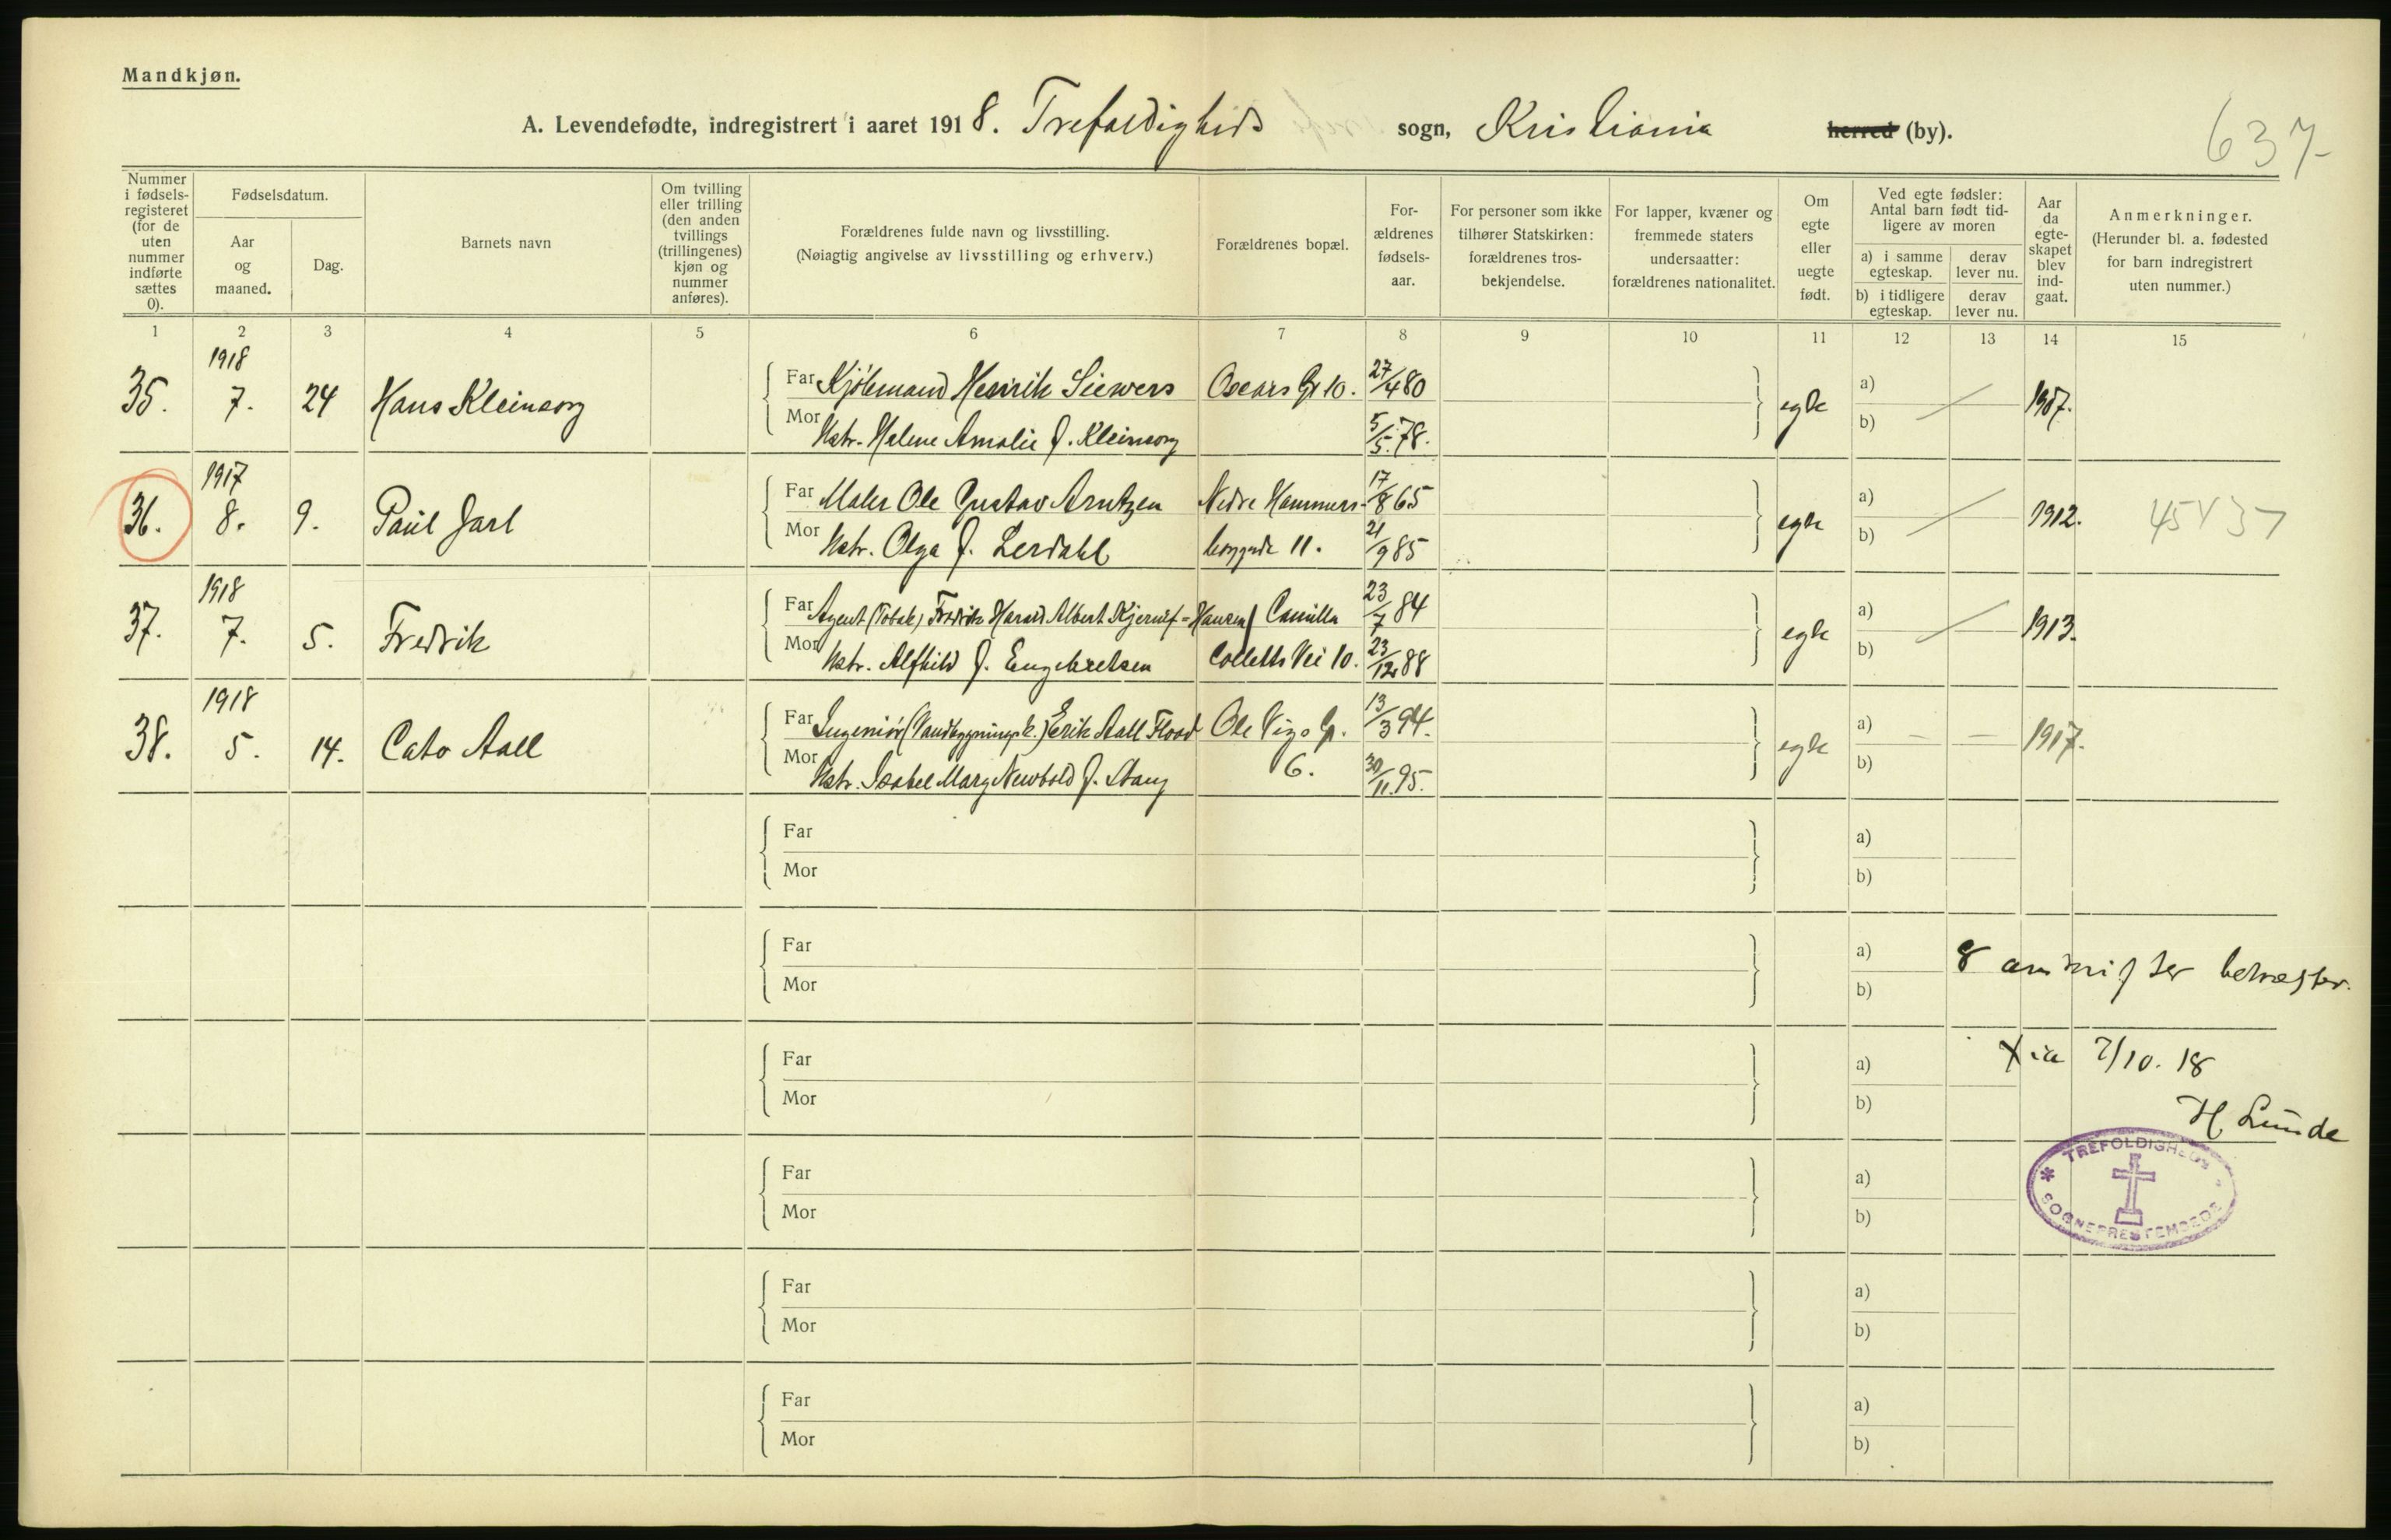 Mandkjøn.
A. Levendefødte, indregistrert i aaret 1918. Trefoldigheds sogn, Kristiania herred (by).
637
Nummer i fødselsregisteret (for de uten nummer indførte sættes 0).
Fødselsdatum.
Aar og maaned.
Dag.
Barnets navn
Om tvilling eller trilling (den anden tvillings (trillingenes) kjøn og nummer anføres).
Forældrenes fulde navn og livsstilling.
(Nøiagtig angivelse av livsstilling og erhverv.)
Forældrenes bopæl.
Forældrenes fødselsaar.
For personer som ikke tilhører Statskirken: forældrenes trosbekjendelse.
For lapper, kvæner og fremmede staters undersaatter: forældrenes nationalitet.
Om egte eller uegte født.
Ved egte fødsler: Antal barn født tidligere av moren
a) i samme egteskap.
derav lever nu.
b) i tidligere egteskap.
derav lever nu.
Aar da egteskapet blev indgaat.
Anmerkninger.
(Herunder bl. a. fødested for barn indregistrert uten nummer.)
1 2 3 4 5 6 7 8 9 10 11 12 13 14 15
35. 1918 7. 24 Hans Kleinsorg
Far Kjøbmand Henrik Siewers Oscars Gt 10. 27/4 80 egte a) 1907.
Mor Hstr. Helene Amalie f. Kleinsorg 5/5. 78. b)
36. 1917 8. 9. Paul Jarl
Far Maler Ole Gustav Arntzen Nedre Hammers- 17/8 65 egte a) 1912. 45 37
Mor Hstr. Olga f. Lerdahl borggade 11. 21/9 85 b)
37. 1918 7. 5. Fredrik
Far Agent (Tobak) Fredrik Harald Albert Kjerulf-Hansen Camilla 23/7 84 egte a) 1913.
Mor Hstr. Alfhild f. Engebretsen Colletts Vei 10. 23/12 88 b)
38. 1918 5. 14. Cato Aall
Far Ingeniør (Vandbygningsk.) Erik Aall Flood Ole Vigs G. 13/3 94. egte a) 1917.
Mor Hstr. Isabel Mary Newbold f. Stang 6. 30/11. 95. b)
Far a)
Mor b)
Far a)
Mor b)
8 avskrifter bekræftes.
Far a)
Mor b)
Xia 7/10. 18
H Lunde
Far a)
Mor b)
TREFOLDIGHEDS
SOGNEPRESTEMBEDE
Far a)
Mor b)
Far a)
Mor b)